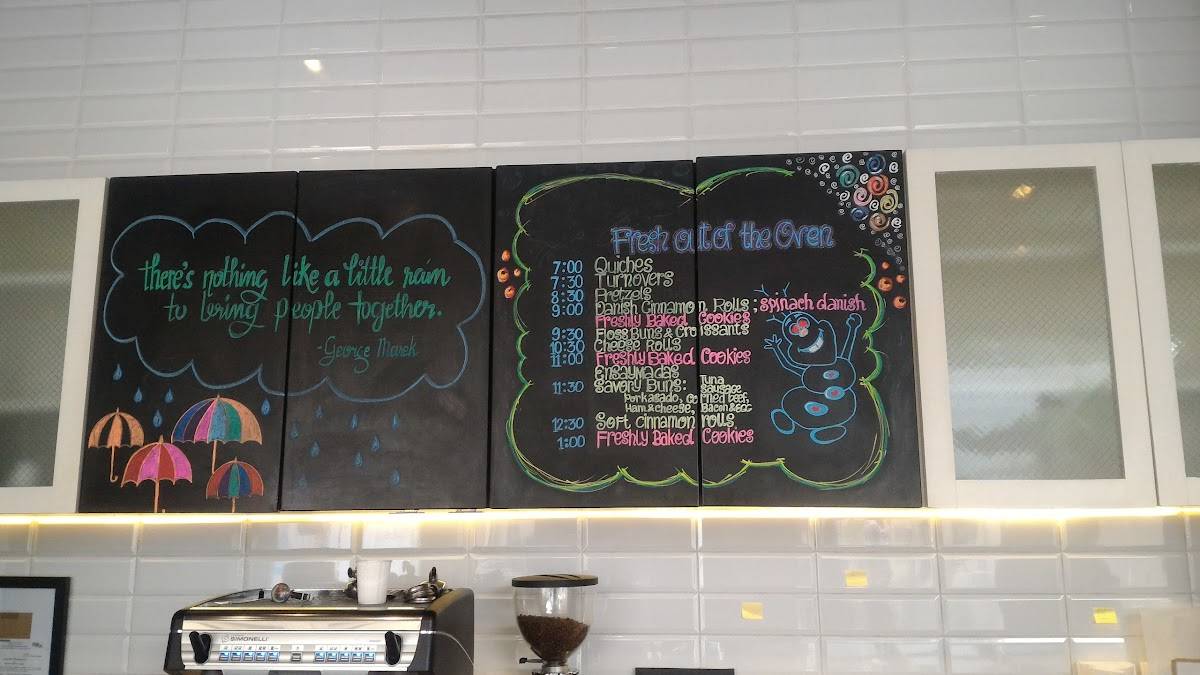 there's nothing like a little rain
to bring people together.
-George Marek
Fresh out of the Oven
7:00 Quiches
7:30 Turnovers
8:30 Pretzels
9:00 Danish Cinnamon Rolls ; spinach danish
Freshly Baked Cookies
9:30 Floss Buns & Croissants
10:30 Cheese Rolls
11:00 Freshly Baked Cookies
Ensaymadas
11:30 Savory Buns: Tuna
Sausage
Porkasado, corned beef,
Ham & cheese, Bacon & EGG
12:30 Soft cinnamon rolls
1:00 Freshly Baked Cookies
SIMONELLI